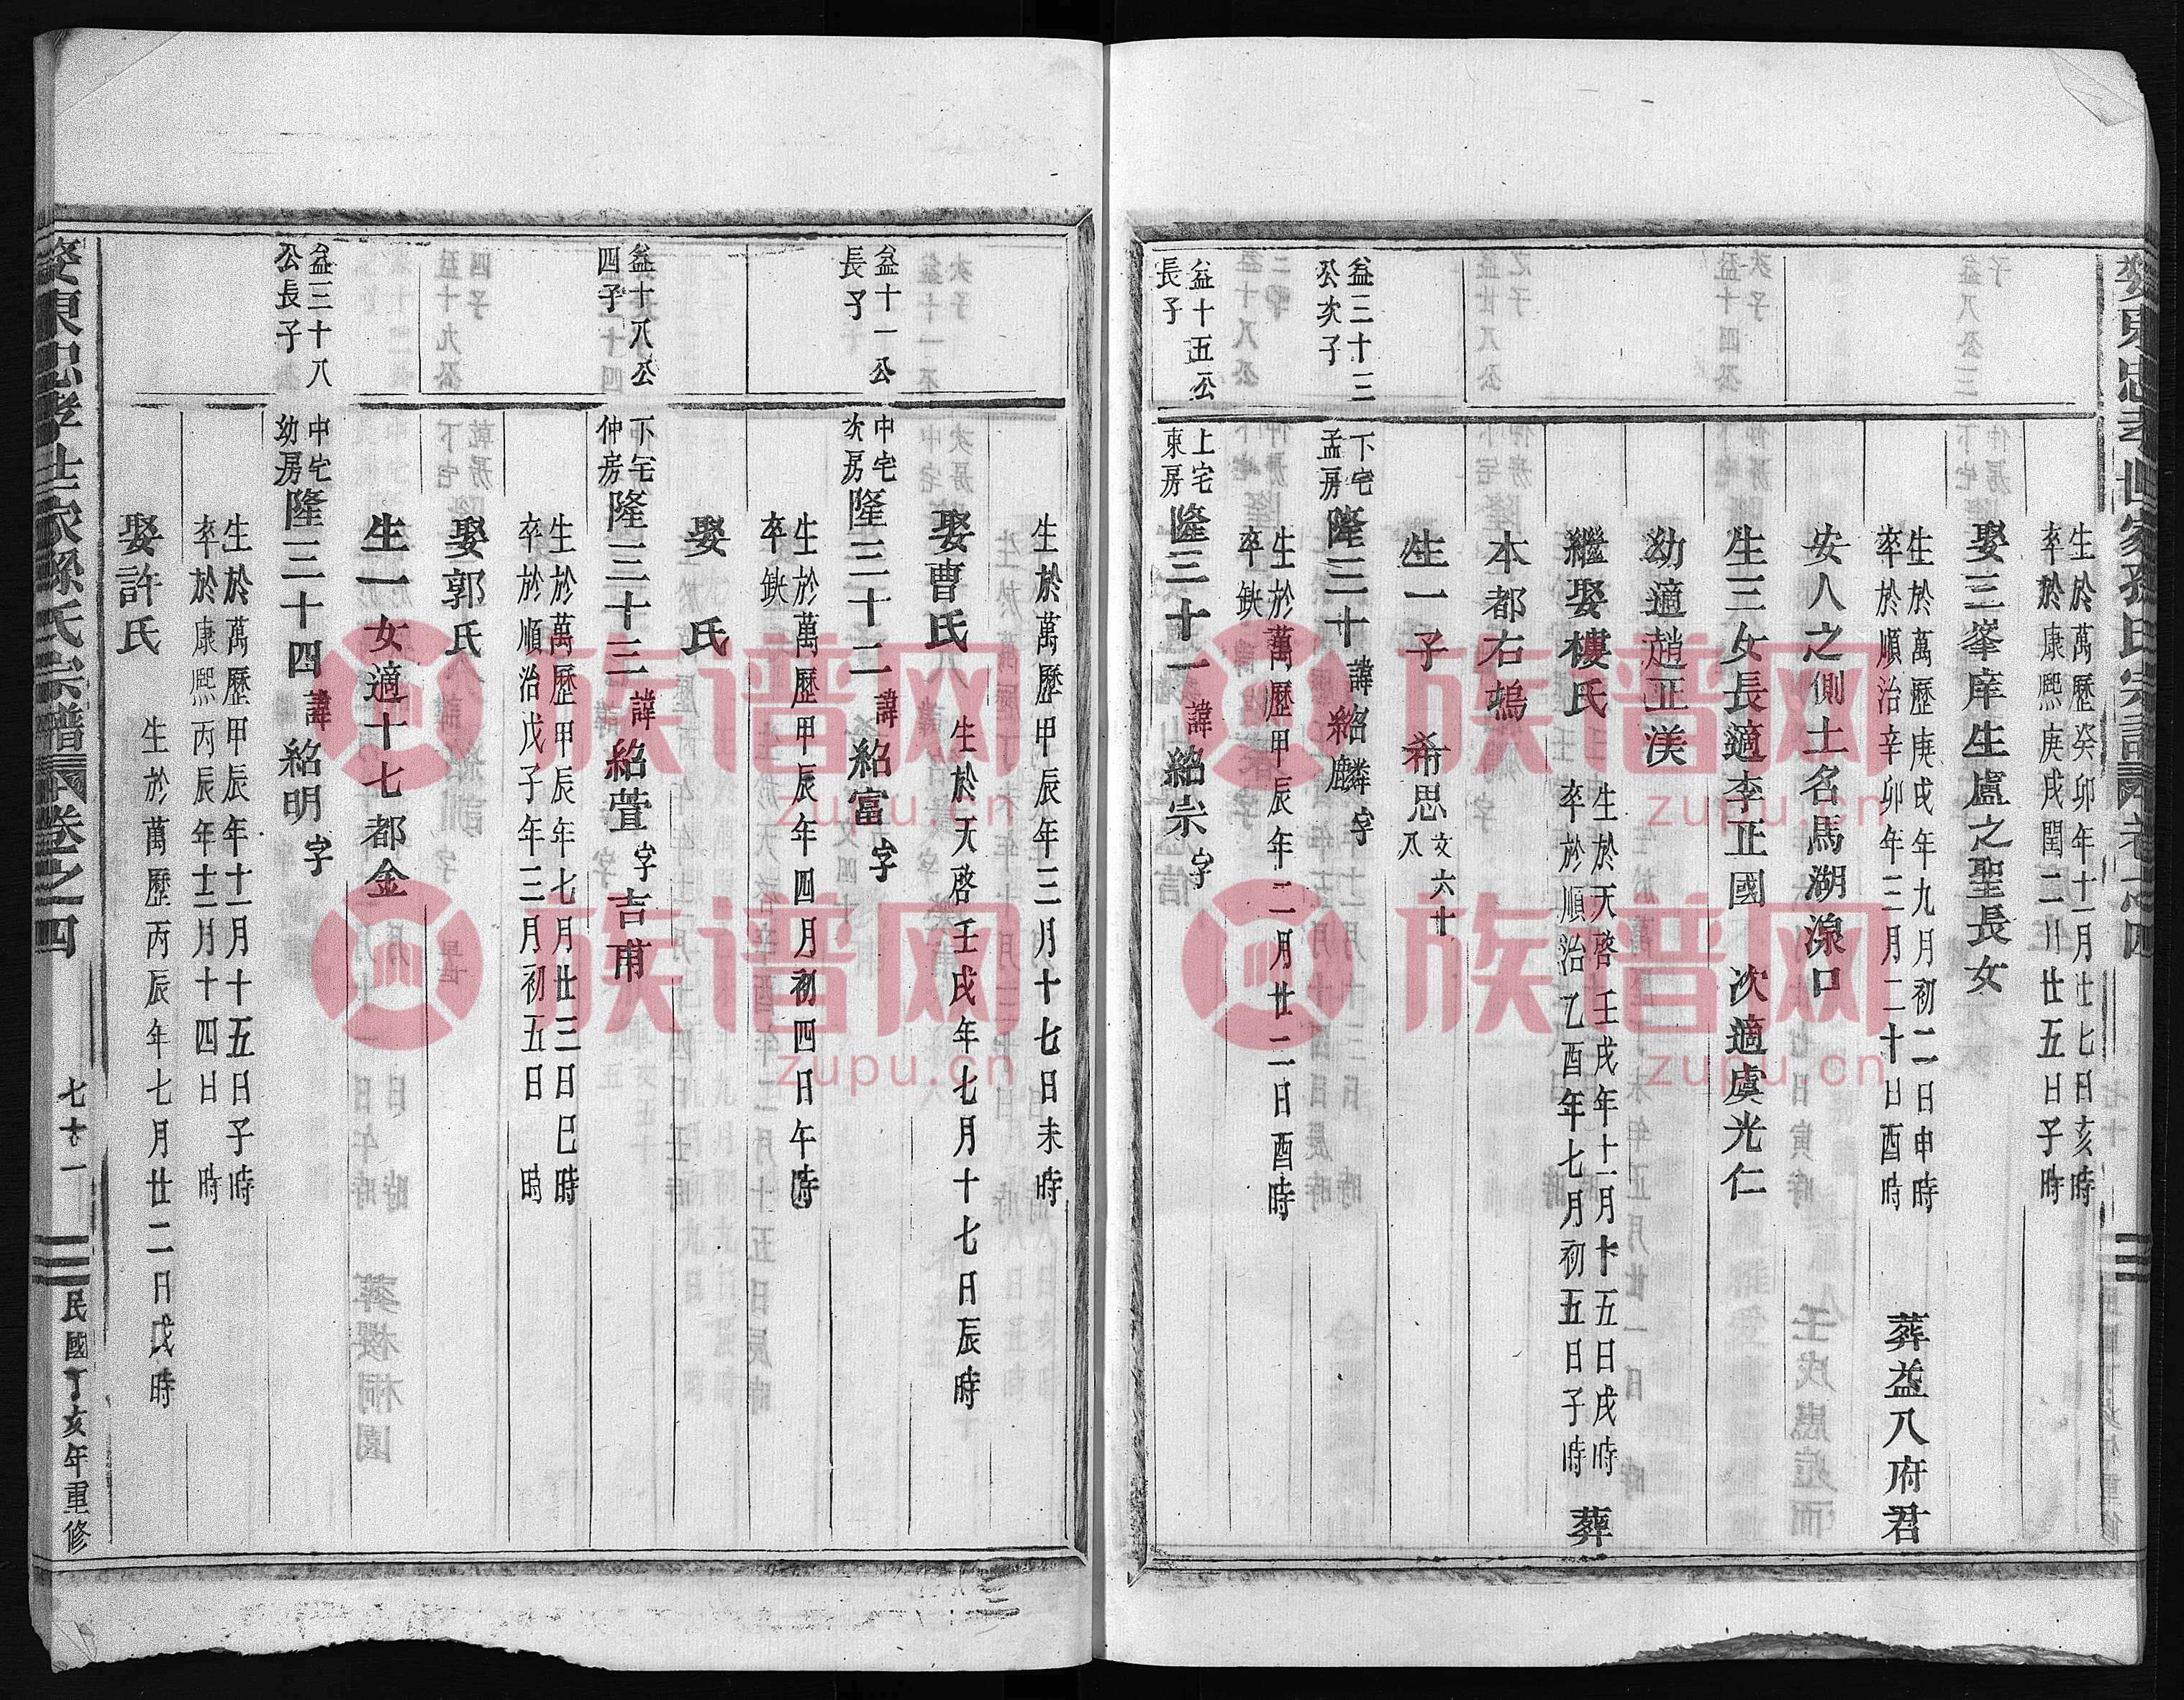 生於萬歷癸卯年十一月廿七日亥時
卒於康熙庚戌閏二月廿五日子時
娶三峯庠生盧之聖長女
生於萬歷庚戌年九月初二日申時
卒於順治辛卯年三月二十日酉時
葬益八府君
安人之側土名馬湖湶口
生三女長適李正國 次適虞光仁
幼適趙正渼
繼娶樓氏
生於天啓壬戌年十一月十五日戌時
卒於順治乙酉年七月初五日子時
葬
本都右塢
生一子 希思 文六十八
益三十三公次子
下宅孟房
隆三十 諱紹麟 字
生於萬歷甲辰年二月廿二日酉時
卒缺
益十五公長子
上宅東房
隆三十一 諱紹宗 字
生於萬歷甲辰年三月十七日未時
娶曹氏 生於天啓壬戌年七月十七日辰時
益十一公長子
中宅次房
隆三十二 諱紹富 字
生於萬歷甲辰年四月初四日午時
卒缺
娶 氏
益十八公四子
下宅仲房
隆三十三 諱紹萱 字吉甫
生於萬歷甲辰年七月廿三日巳時
卒於順治戊子年三月初五日 時
娶郭氏
生一女適十七都金
益三十八公長子
中宅幼房
隆三十四 諱紹明 字
生於萬歷甲辰年十一月十五日子時
卒於康熙丙辰年十二月十四日 時
娶許氏 生於萬歷丙辰年七月廿二日戌時
婺東忠孝世家孫氏宗譜 卷之四
七十一
民國丁亥年重修
族谱网
zupu.cn
族谱网
zupu.cn
族谱网
zupu.cn
族谱网
zupu.cn